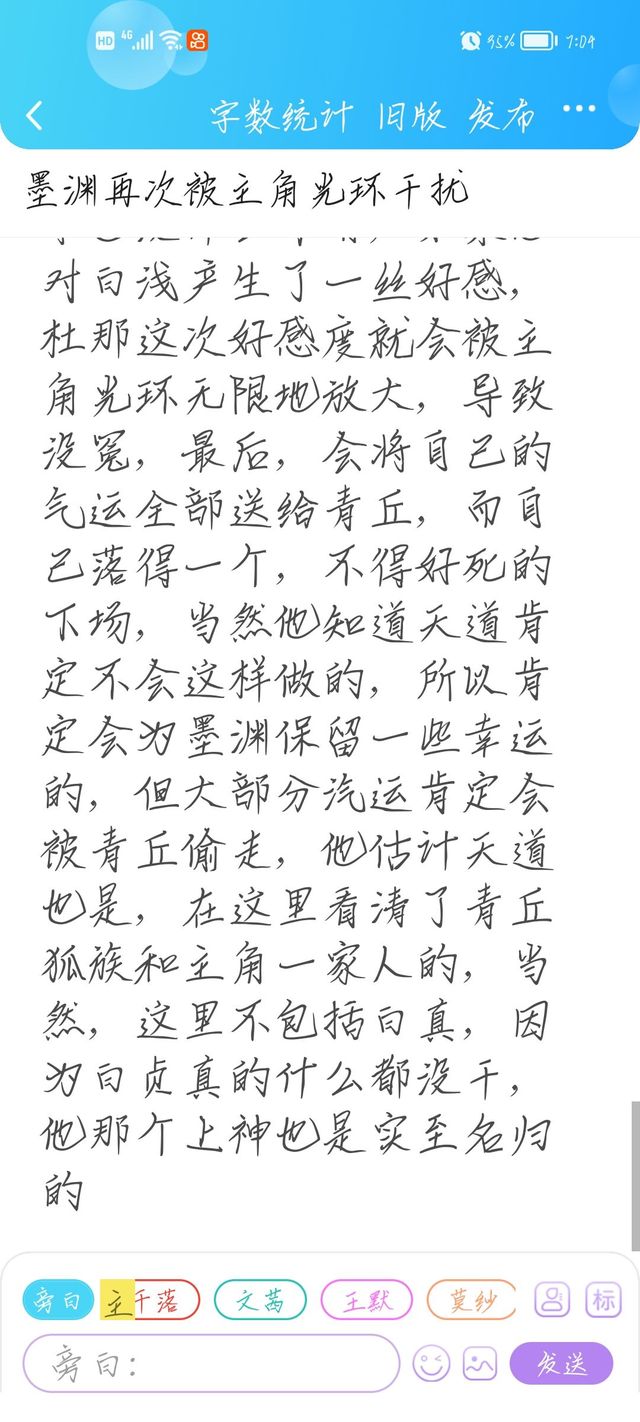 HD 4G 35% 7:04
字数统计 旧版 发布
墨渊再次被主角光环干扰
对白浅产生了一丝好感，
杜那这次好感度就会被主
角光环无限地放大，导致
没冤，最后，会将自己的
气运全部送给青丘，而自
己落得一个，不得好死的
下场，当然他知道天道肯
定不会这样做的，所以肯
定会为墨渊保留一些幸运
的，但大部分汽运肯定会
被青丘偷走，他估计天道
也是，在这里看清了青丘
狐族和主角一家人的，当
然，这里不包括白真，因
为白贞真的什么都没干，
他那个上神也是实至名归
的
旁白 主 千落 文茜 王默 莫纱 标
旁白： 发送